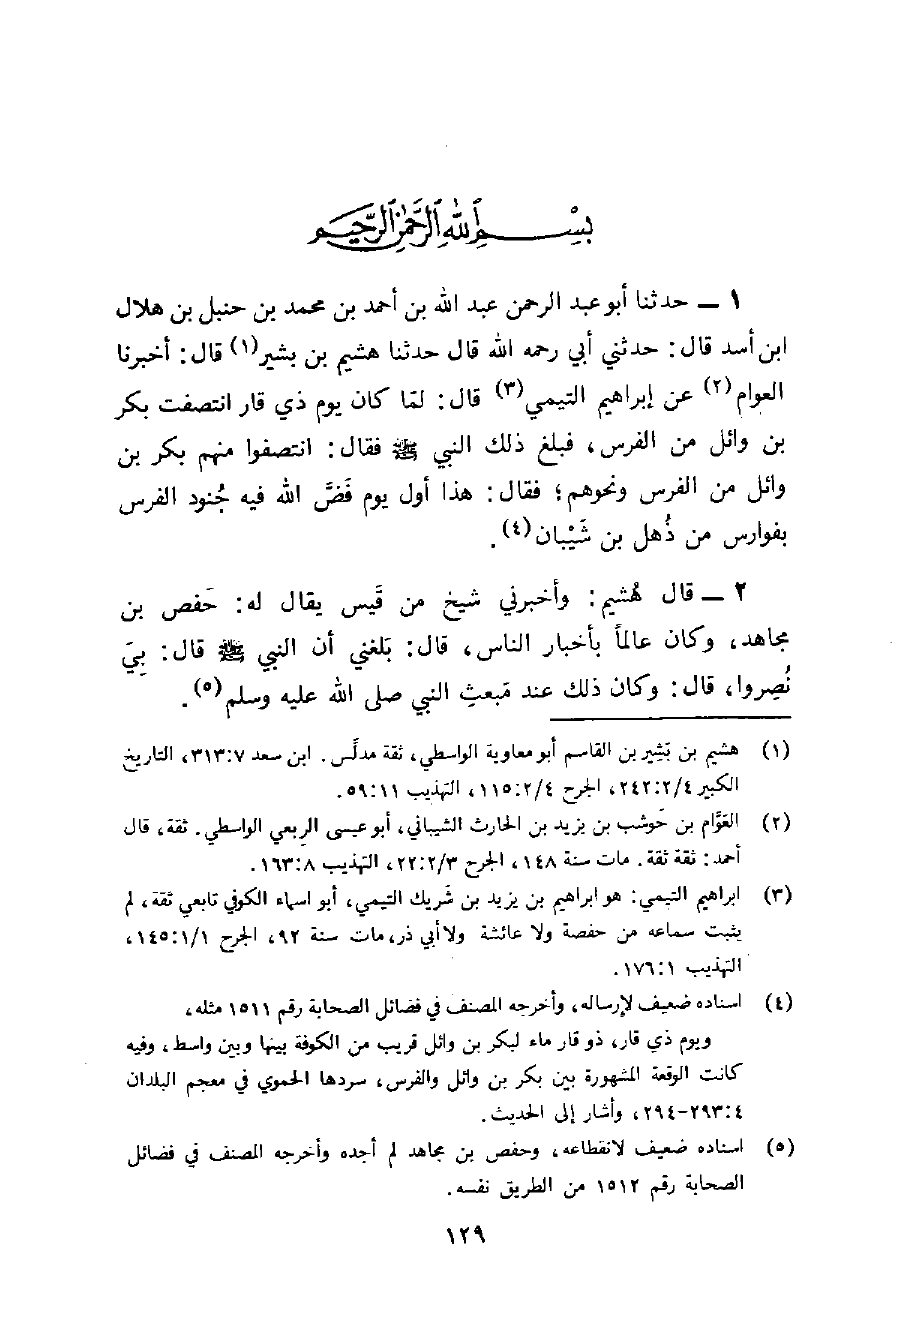 بِسْمِ ٱللَّهِ ٱلرَّحْمَٰنِ ٱلرَّحِيمِ
١ ــ حدثنا أبو عبد الرحمن عبد الله بن أحمد بن محمد بن حنبل بن هلال
ابن أسد قال: حدثني أبي رحمه الله قال حدثنا هشيم بن بشير(١) قال: أخبرنا
العوام(٢) عن إبراهيم التيمي(٣) قال: لمّا كان يوم ذي قار انتصفت بكر
بن وائل من الفرس، فبلغ ذلك النبي ﷺ فقال: انتصفوا منهم بكر بن
وائل من الفرس ونحوهم؛ فقال: هذا أول يوم فَضَّ الله فيه جُنود الفرس
بفوارس من ذُهل بن شَيْبان(٤).
٢ ــ قال هُشيم: وأخبرني شيخ من قَيس يقال له: حَفص بن
مجاهد، وكان عالماً بأخبار الناس، قال: بَلغني أن النبي ﷺ قال: بِيَ
نُصِروا، قال: وكان ذلك عند مَبعثِ النبي صلى الله عليه وسلم(٥).
(١) هشيم بن بَشِير بن القاسم أبو معاوية الواسطي، ثقة مدلّس. ابن سعد ٣١٣:٧، التاريخ
الكبير ٢٤٢:٢/٤، الجرح ١١٥:٢/٤، التهذيب ٥٩:١١.
(٢) العَوَّام بن حَوشب بن يزيد بن الحارث الشيباني، أبو عيسى الربعي الواسطي. ثقة، قال
أحمد: ثقة ثقة. مات سنة ١٤٨، الجرح ٢٢:٢/٣، التهذيب ١٦٣:٨.
(٣) ابراهيم التيمي: هو ابراهيم بن يزيد بن شَريك التيمي، أبو اسماء الكوفي تابعي ثقة، لم
يثبت سماعه من حفصة ولا عائشة ولا أبي ذر، مات سنة ٩٢، الجرح ١٤٥:١/١،
التهذيب ١٧٦:١.
(٤) اسناده ضعيف لإرساله، وأخرجه المصنف في فضائل الصحابة رقم ١٥١١ مثله،
ويوم ذي قار، ذو قار ماء لبكر بن وائل قريب من الكوفة بينها وبين واسط، وفيه
كانت الوقعة المشهورة بين بكر بن وائل والفرس، سردها الحموي في معجم البلدان
٢٩٣:٤-٢٩٤، وأشار إلى الحديث.
(٥) اسناده ضعيف لانقطاعه، وحفص بن مجاهد لم أجده وأخرجه المصنف في فضائل
الصحابة رقم ١٥١٢ من الطريق نفسه.
١٢٩